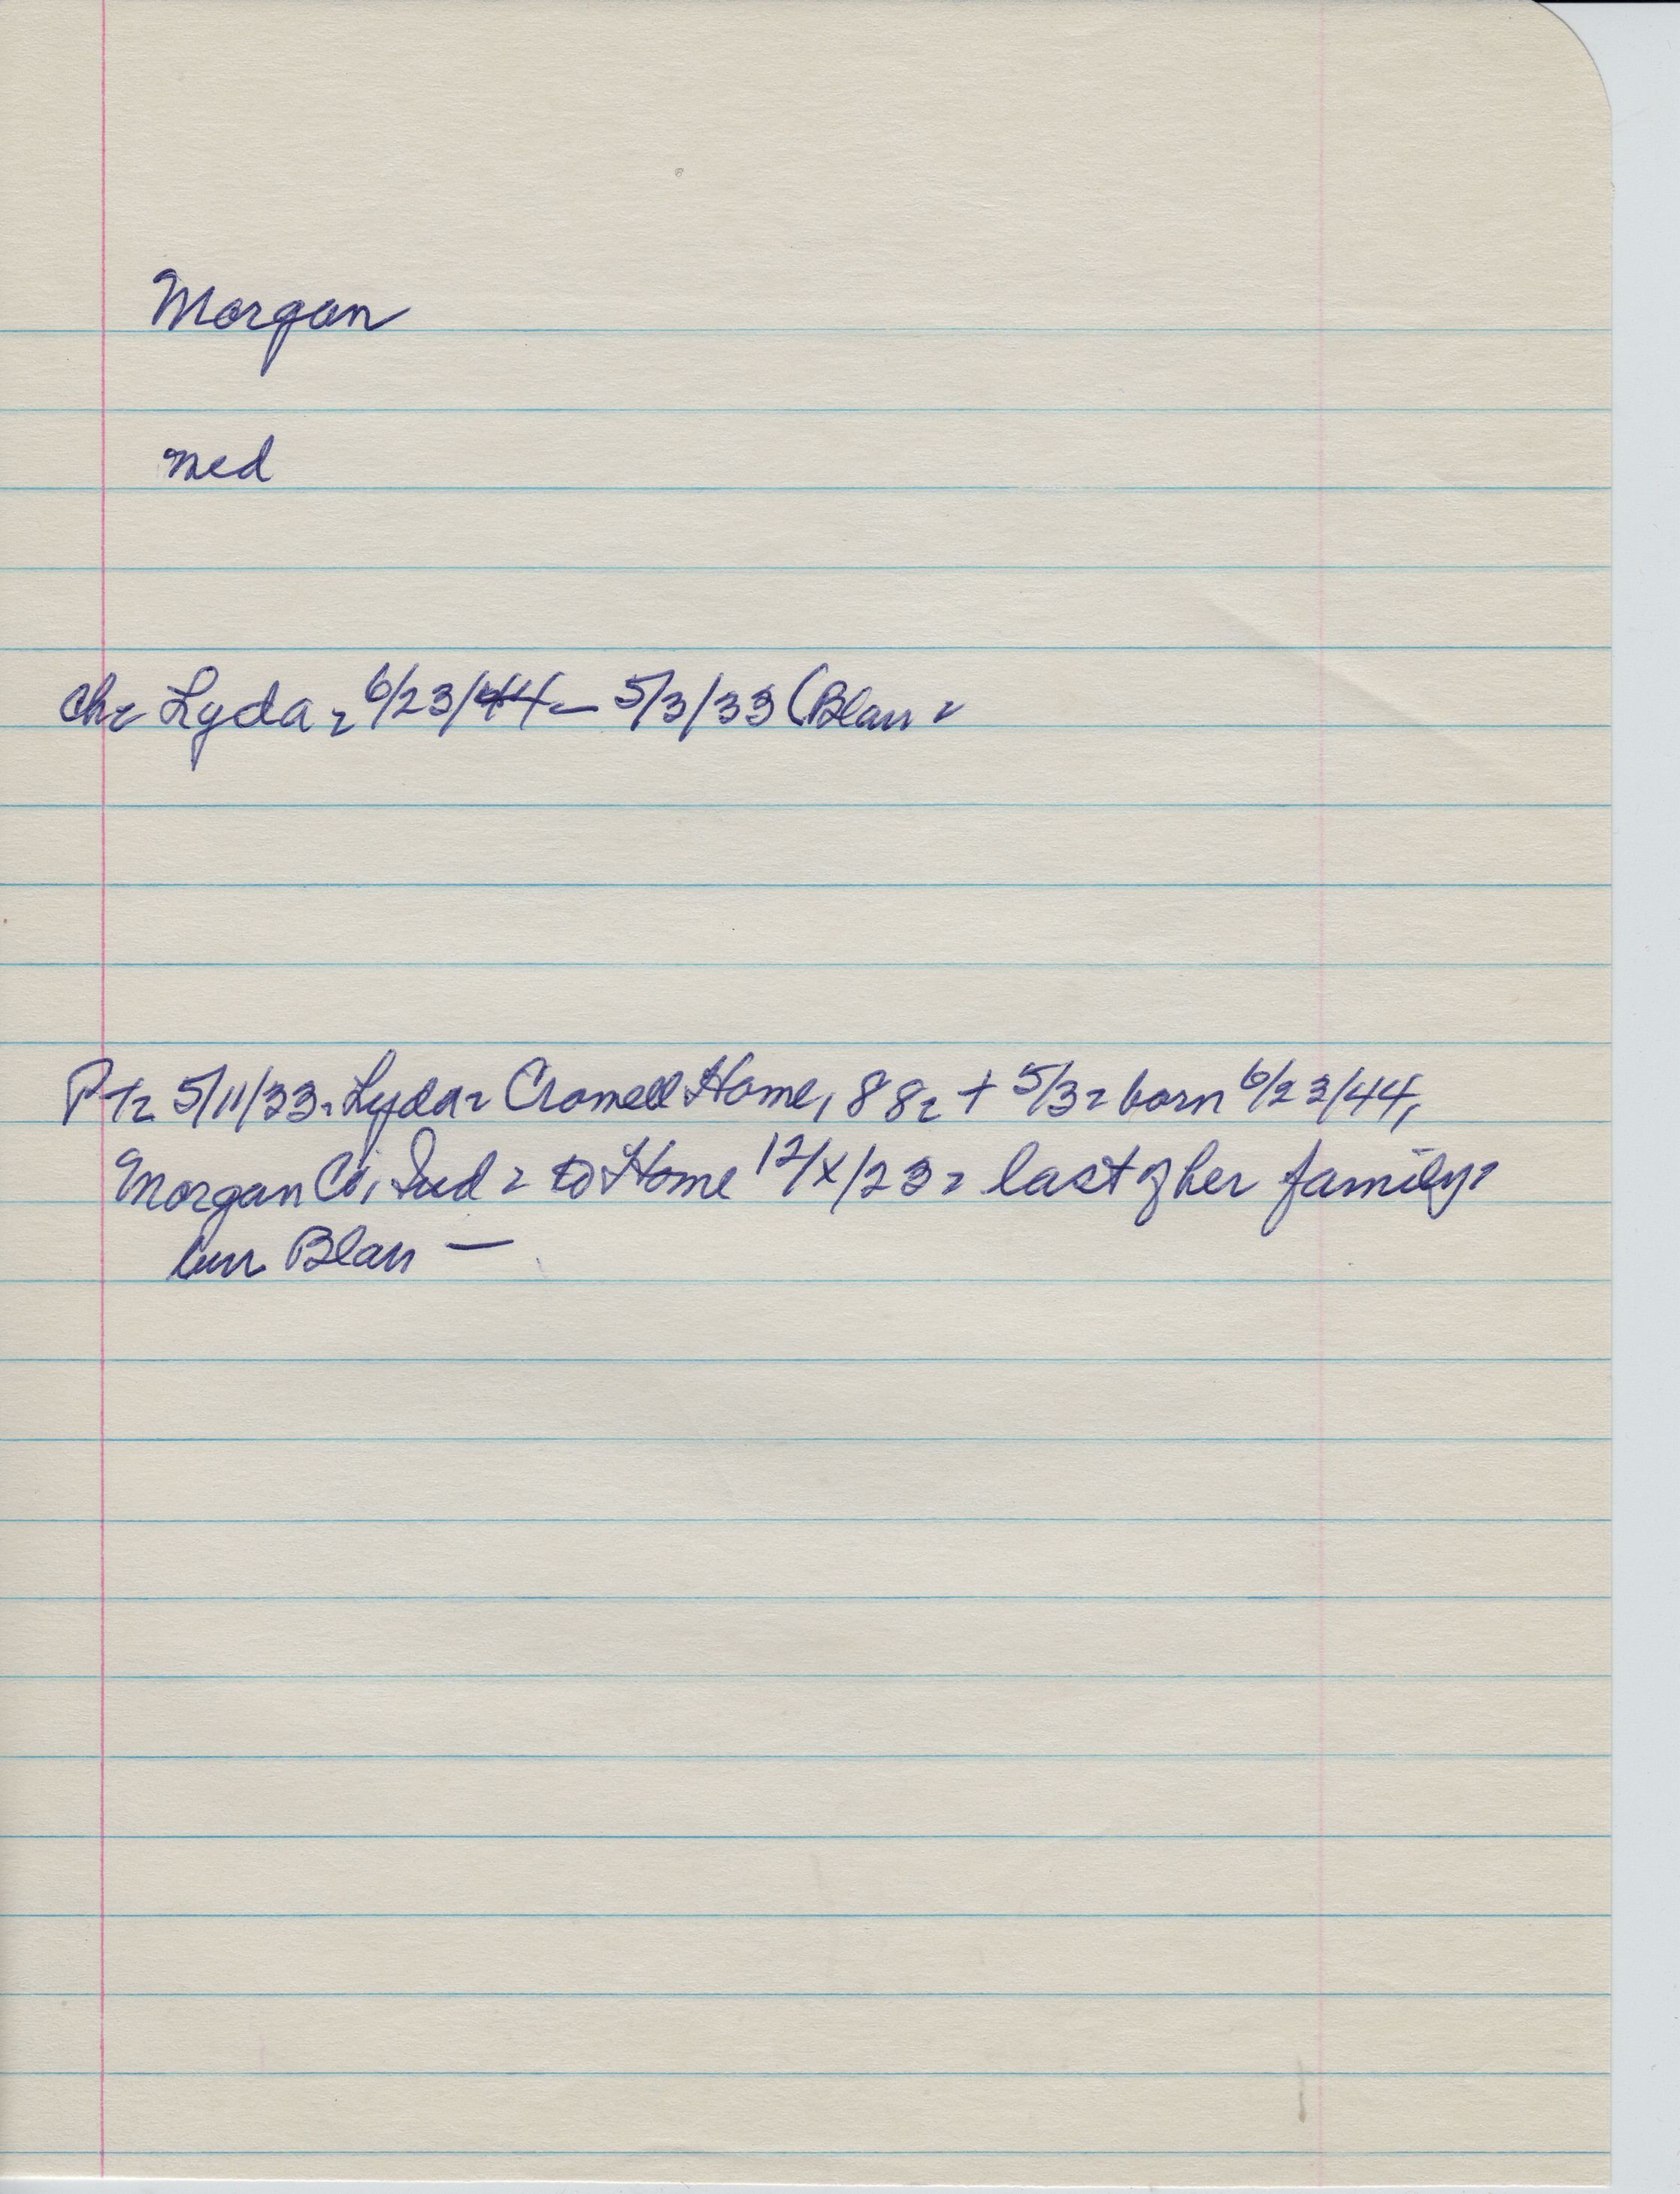 Morgan
med
ch- Lyda - 6/23/44 - 5/3/33 (Blan -
PT- 5/11/33 - Lyda - Cromell Home, 88 - + 5/3 - born 6/23/44,
Morgan Co, Ind - to Home 12/x/23 - last of her family -
bur Blan —